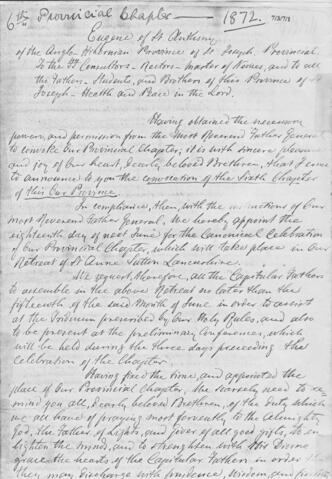 6th Provincial Chapter — 1872.
Eugene of St Anthony
of the Anglo-Hibernian Province of St Joseph, Provincial.
To the Consultors - Rectors - Master of Novices, and to all
the Fathers - Students, and Brothers of this Province of St
Joseph - Health and Peace in the Lord.
Having obtained the necessary
powers, and permission from the Most Reverend Father General
to convoke Our Provincial Chapter, it is with sincere pleasure
and joy of our heart, dearly beloved Brethren, that I come
to announce to you the convocation of the Sixth Chapter
of this Our Province.
In compliance, then, with the instructions of Our
most Reverend Father General. We hereby appoint the
eighteenth day of next June for the Canonical Celebration
of Our Provincial Chapter, which will take place in Our
Retreat of St Anne Sutton Lancashire.
We request, therefore, all the Capitular Fathers
to assemble in the above Retreat no later than the
fifteenth of the said Month of June in order to assist
at the Triduum prescribed by Our Holy Rules, and also
to be present at the preliminary Conferences, which
will be held during the three days preceding the
celebration of the Chapter.
Having fixed the time, and appointed the
place of Our Provincial Chapter, We scarcely need to re-
mind you all, dearly beloved Brethren, of the duty which
we all have of praying most fervently to the Almighty
God, the Father of lights, and giver of all good gifts, to en-
lighten the minds, and to strengthen with His Divine
grace the hearts of the Capitular Fathers in order that
they may discharge with prudence, wisdom, and